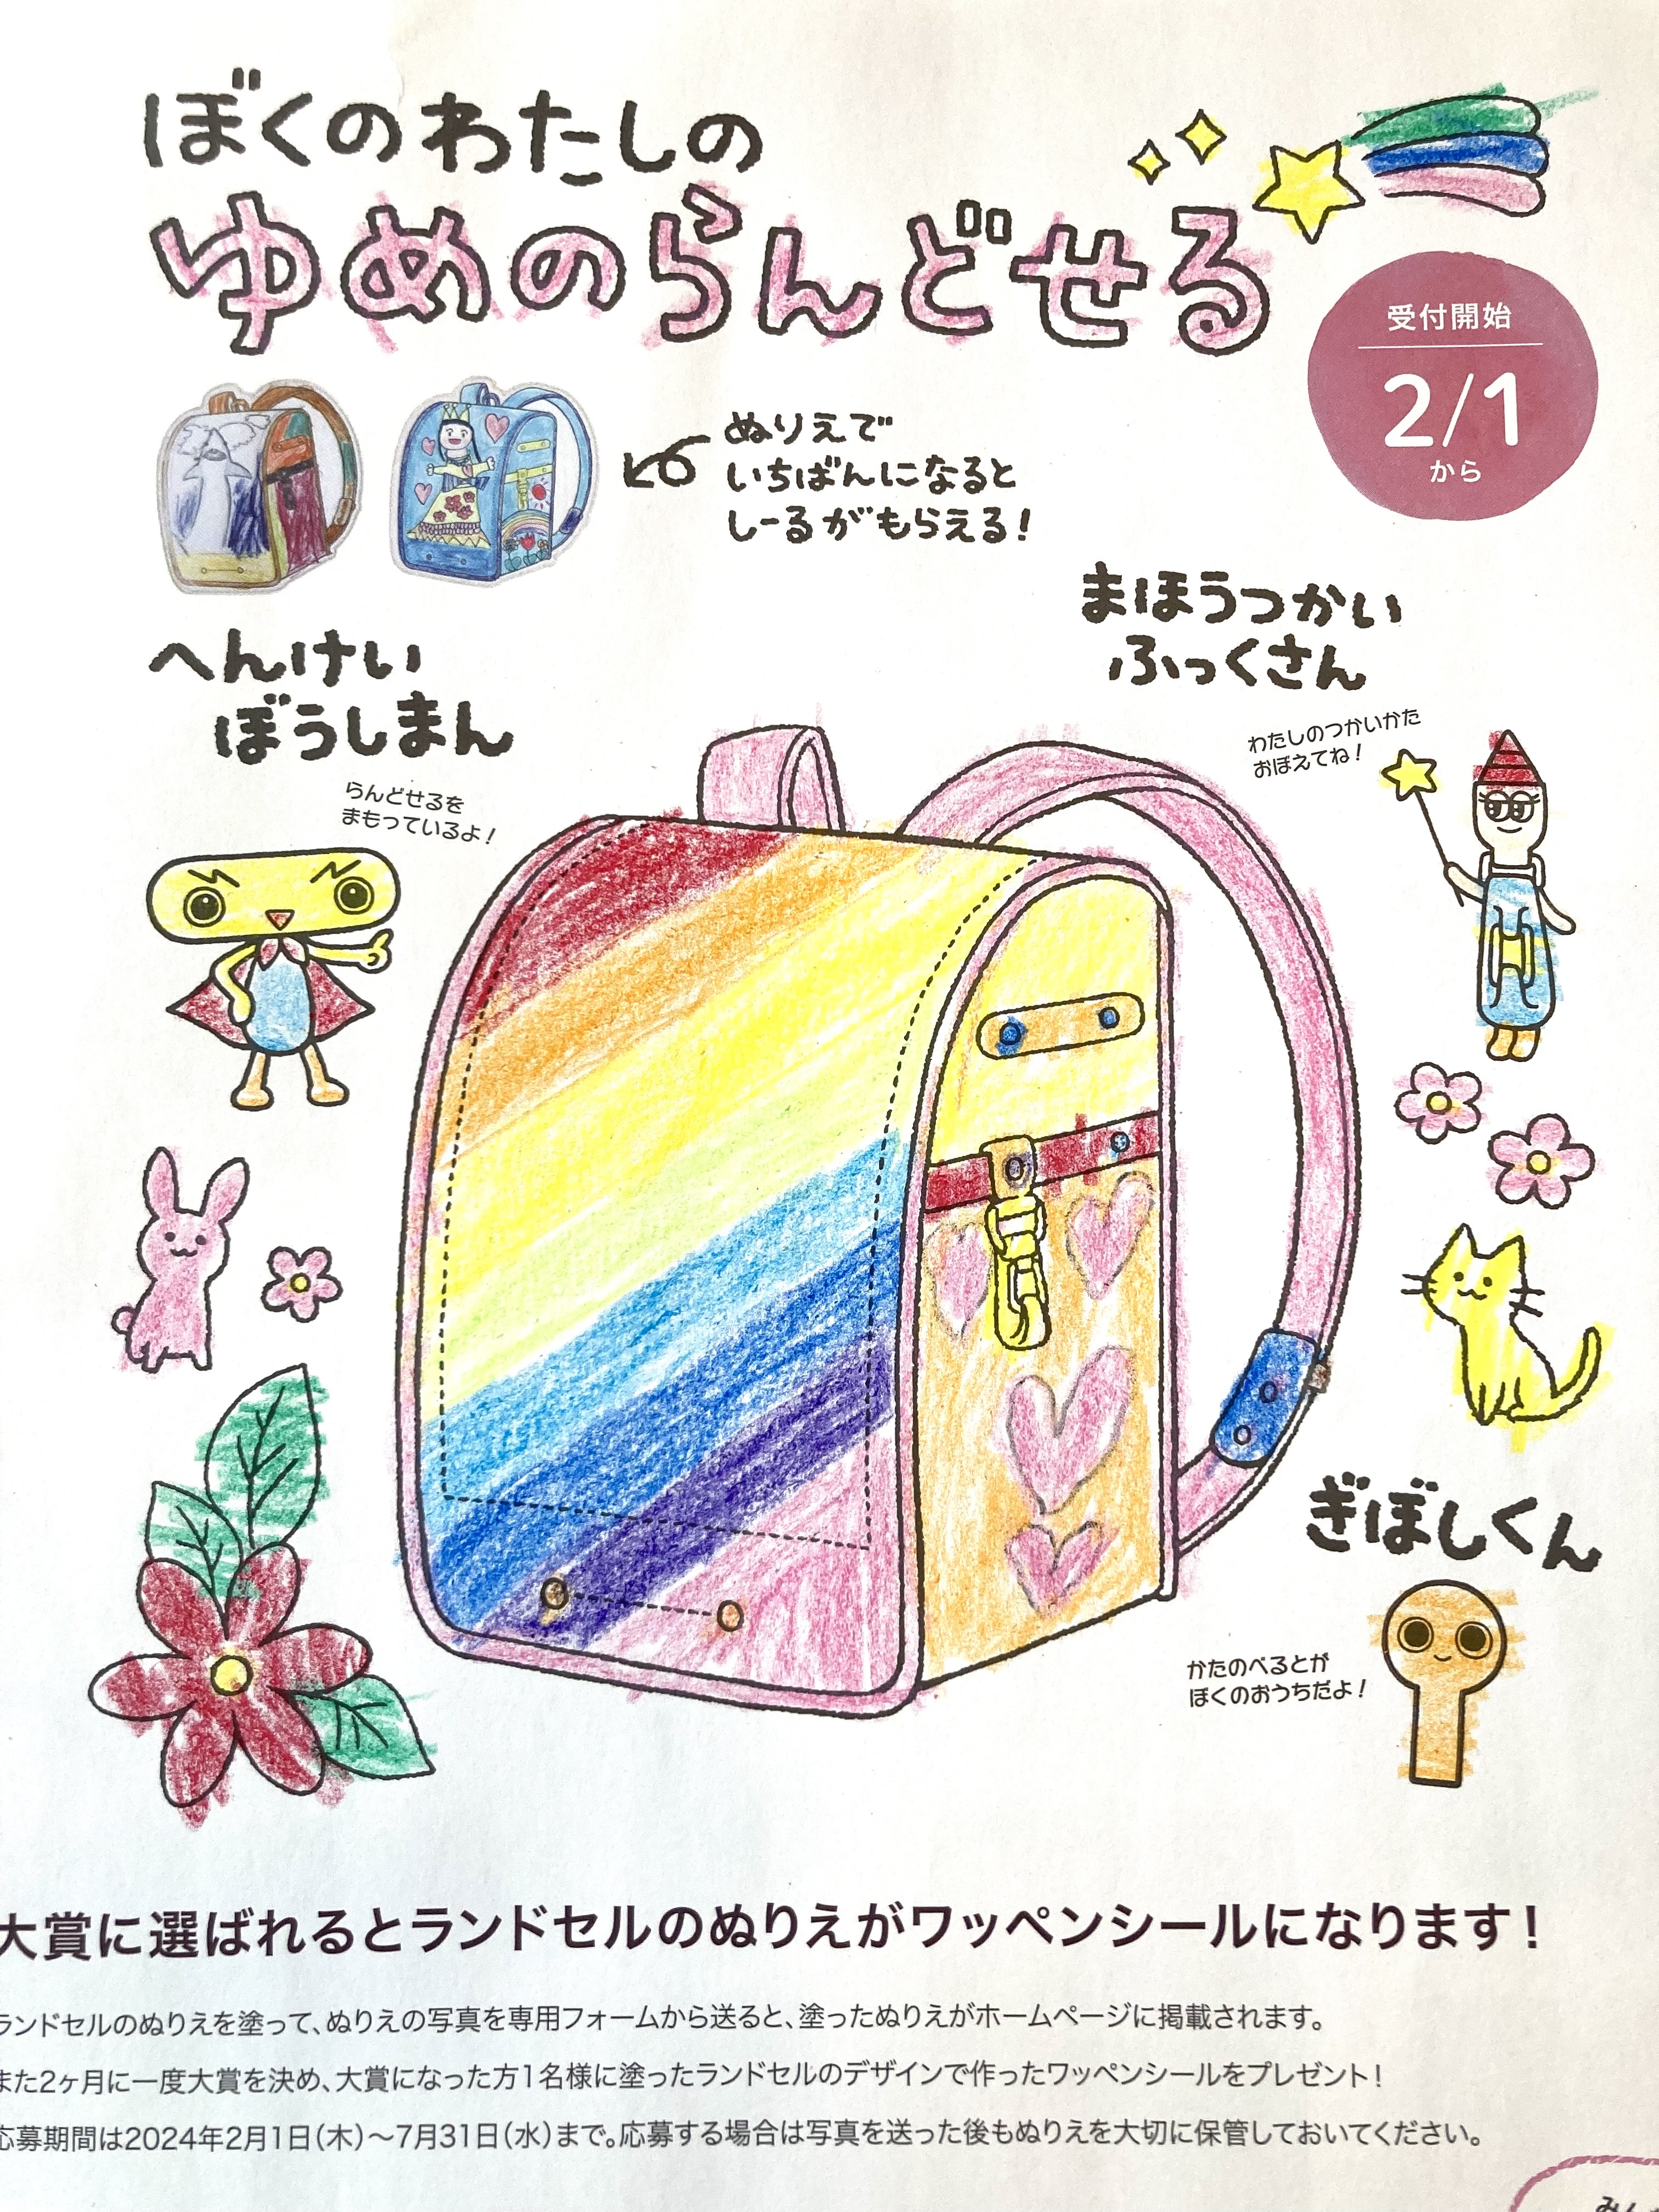 ぼくのわたしの
ゆめのらんどせる
受付開始
2/1
から
ぬりえで
いちばんになると
しーるがもらえる!
へんけい
ぼうしまん
らんどせるを
まもっているよ!
まほうつかい
ふっくさん
わたしのつかいかた
おぼえてね!
ぎぼしくん
かたのべるとが
ぼくのおうちだよ!
大賞に選ばれるとランドセルのぬりえがワッペンシールになります!
ランドセルのぬりえを塗って、ぬりえの写真を専用フォームから送ると、塗ったぬりえがホームページに掲載されます。
また2ヶ月に一度大賞を決め、大賞になった方1名様に塗ったランドセルのデザインで作ったワッペンシールをプレゼント!
応募期間は2024年2月1日(木)〜7月31日(水)まで。応募する場合は写真を送った後もぬりえを大切に保管しておいてください。